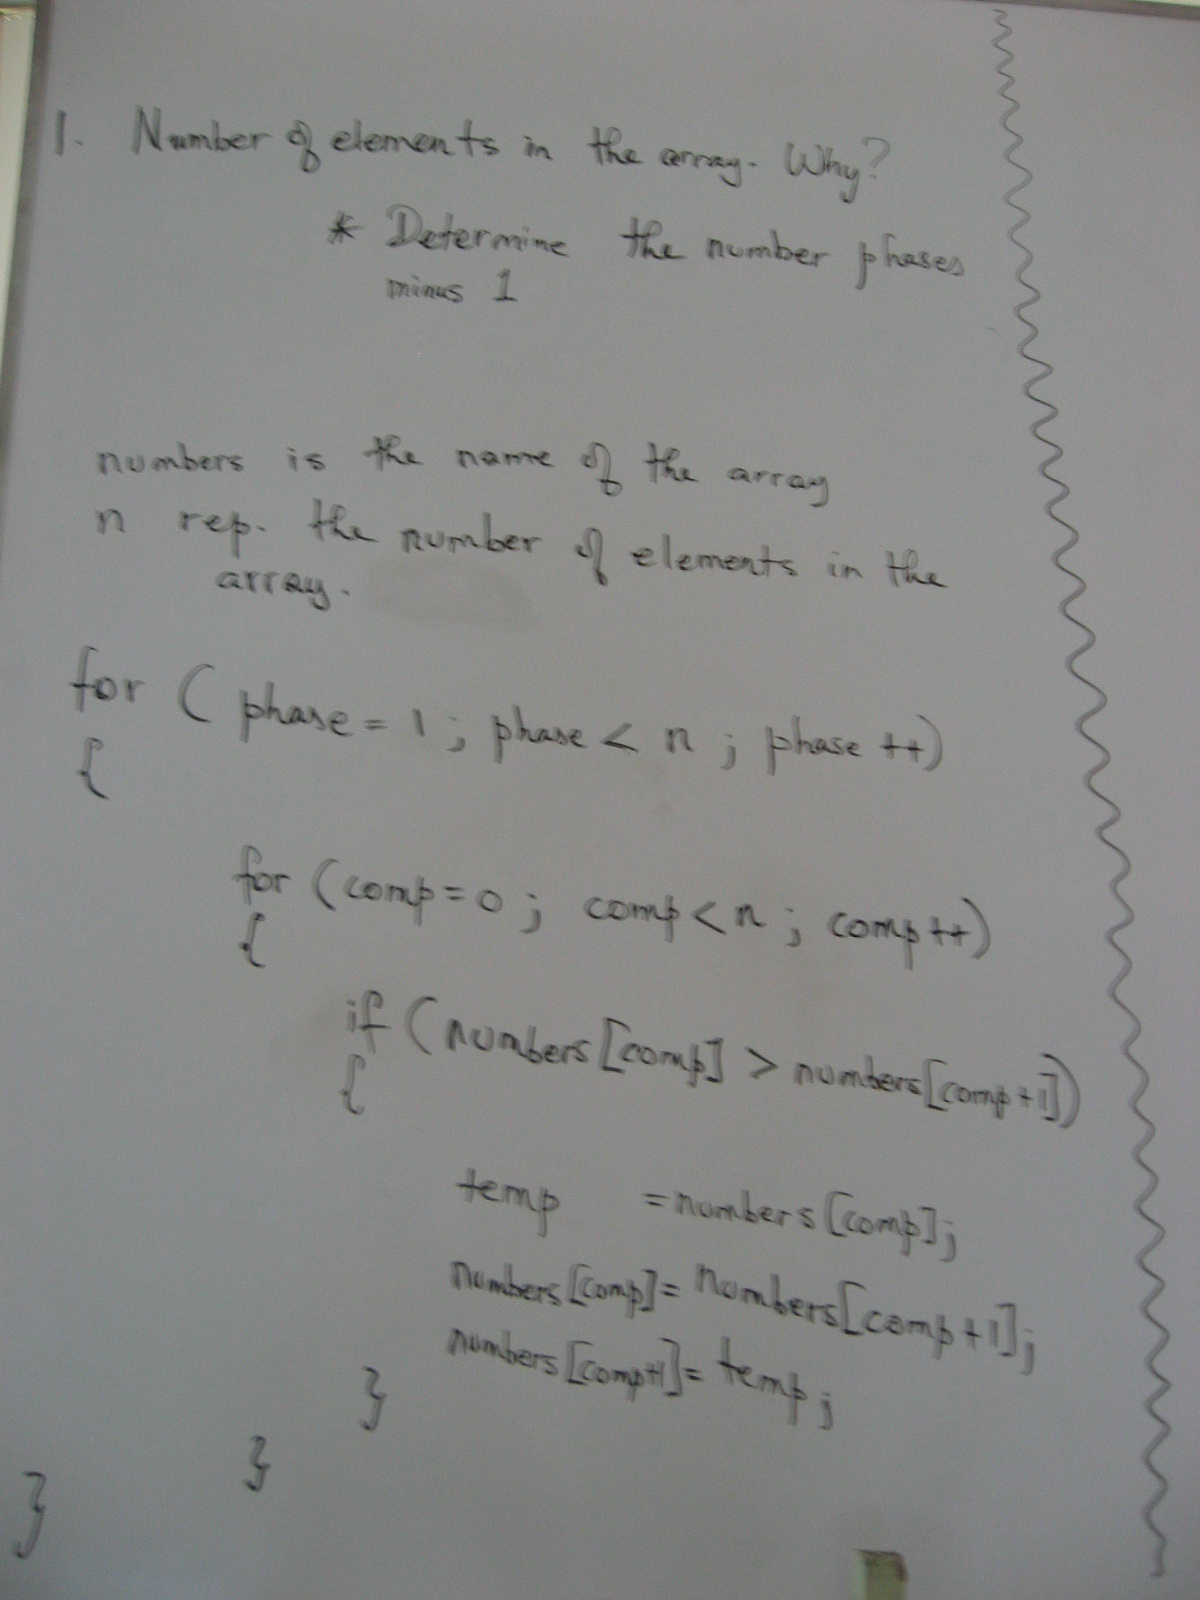 1. Number of elements in the array. Why?
* Determine the number phases
minus 1
numbers is the name of the array
n rep. the number of elements in the
array.
for ( phase = 1 ; phase < n ; phase ++)
{
for (comp = 0 ; comp < n ; comp ++)
{
if (numbers [comp] > numbers [comp + 1])
{
temp = numbers [comp];
numbers [comp] = numbers [comp + 1];
numbers [comp+1] = temp;
}
}
}